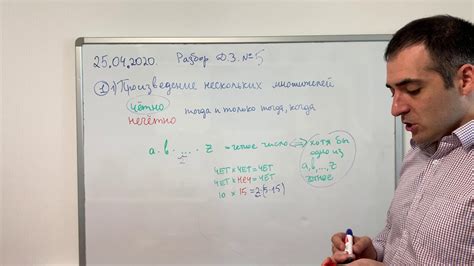 25.04.2020. Разбор Д.З. №5
① 1) Произведение нескольких множителей
чётно тогда и только тогда, когда
нечётно
a·b·...·z - чётное число ⇔ хотя бы
одно из
a,b,...,z
чётное
ЧЕТ × ЧЕТ = ЧЕТ
ЧЕТ × НЕЧ = ЧЕТ
10 × 15 = 2·(5·15)